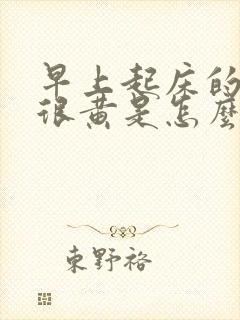 早上起床的
很黄是怎麼
東野裕